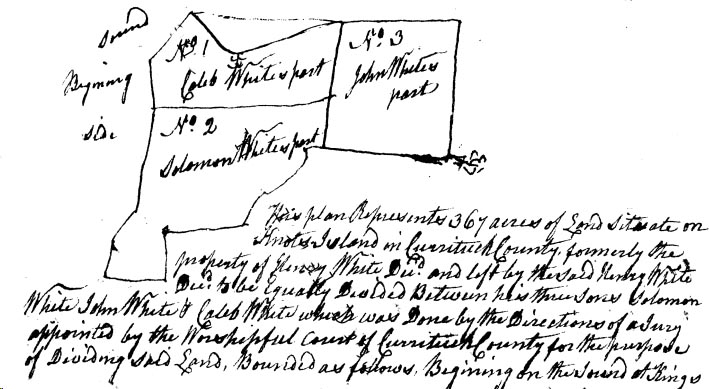 Sound
Begining
side
No. 1
Caleb Whites part
No. 2
Solomon Whites part
No. 3
John Whites
part
This plan Represents 367 acres of Land Situate on
Knots Island in Currituck County, formerly the
property of Henry White Decd. and left by the said Henry White
Decd. to be Equally Devided Between his three Sones Solomon
White John White & Caleb White which was Done by the Directions of a Jury
appointed by the Worshepfull Court of Currituck County for the purpose
of Dividing said Land, Bounded as follows, Begining on the Sound at Kings